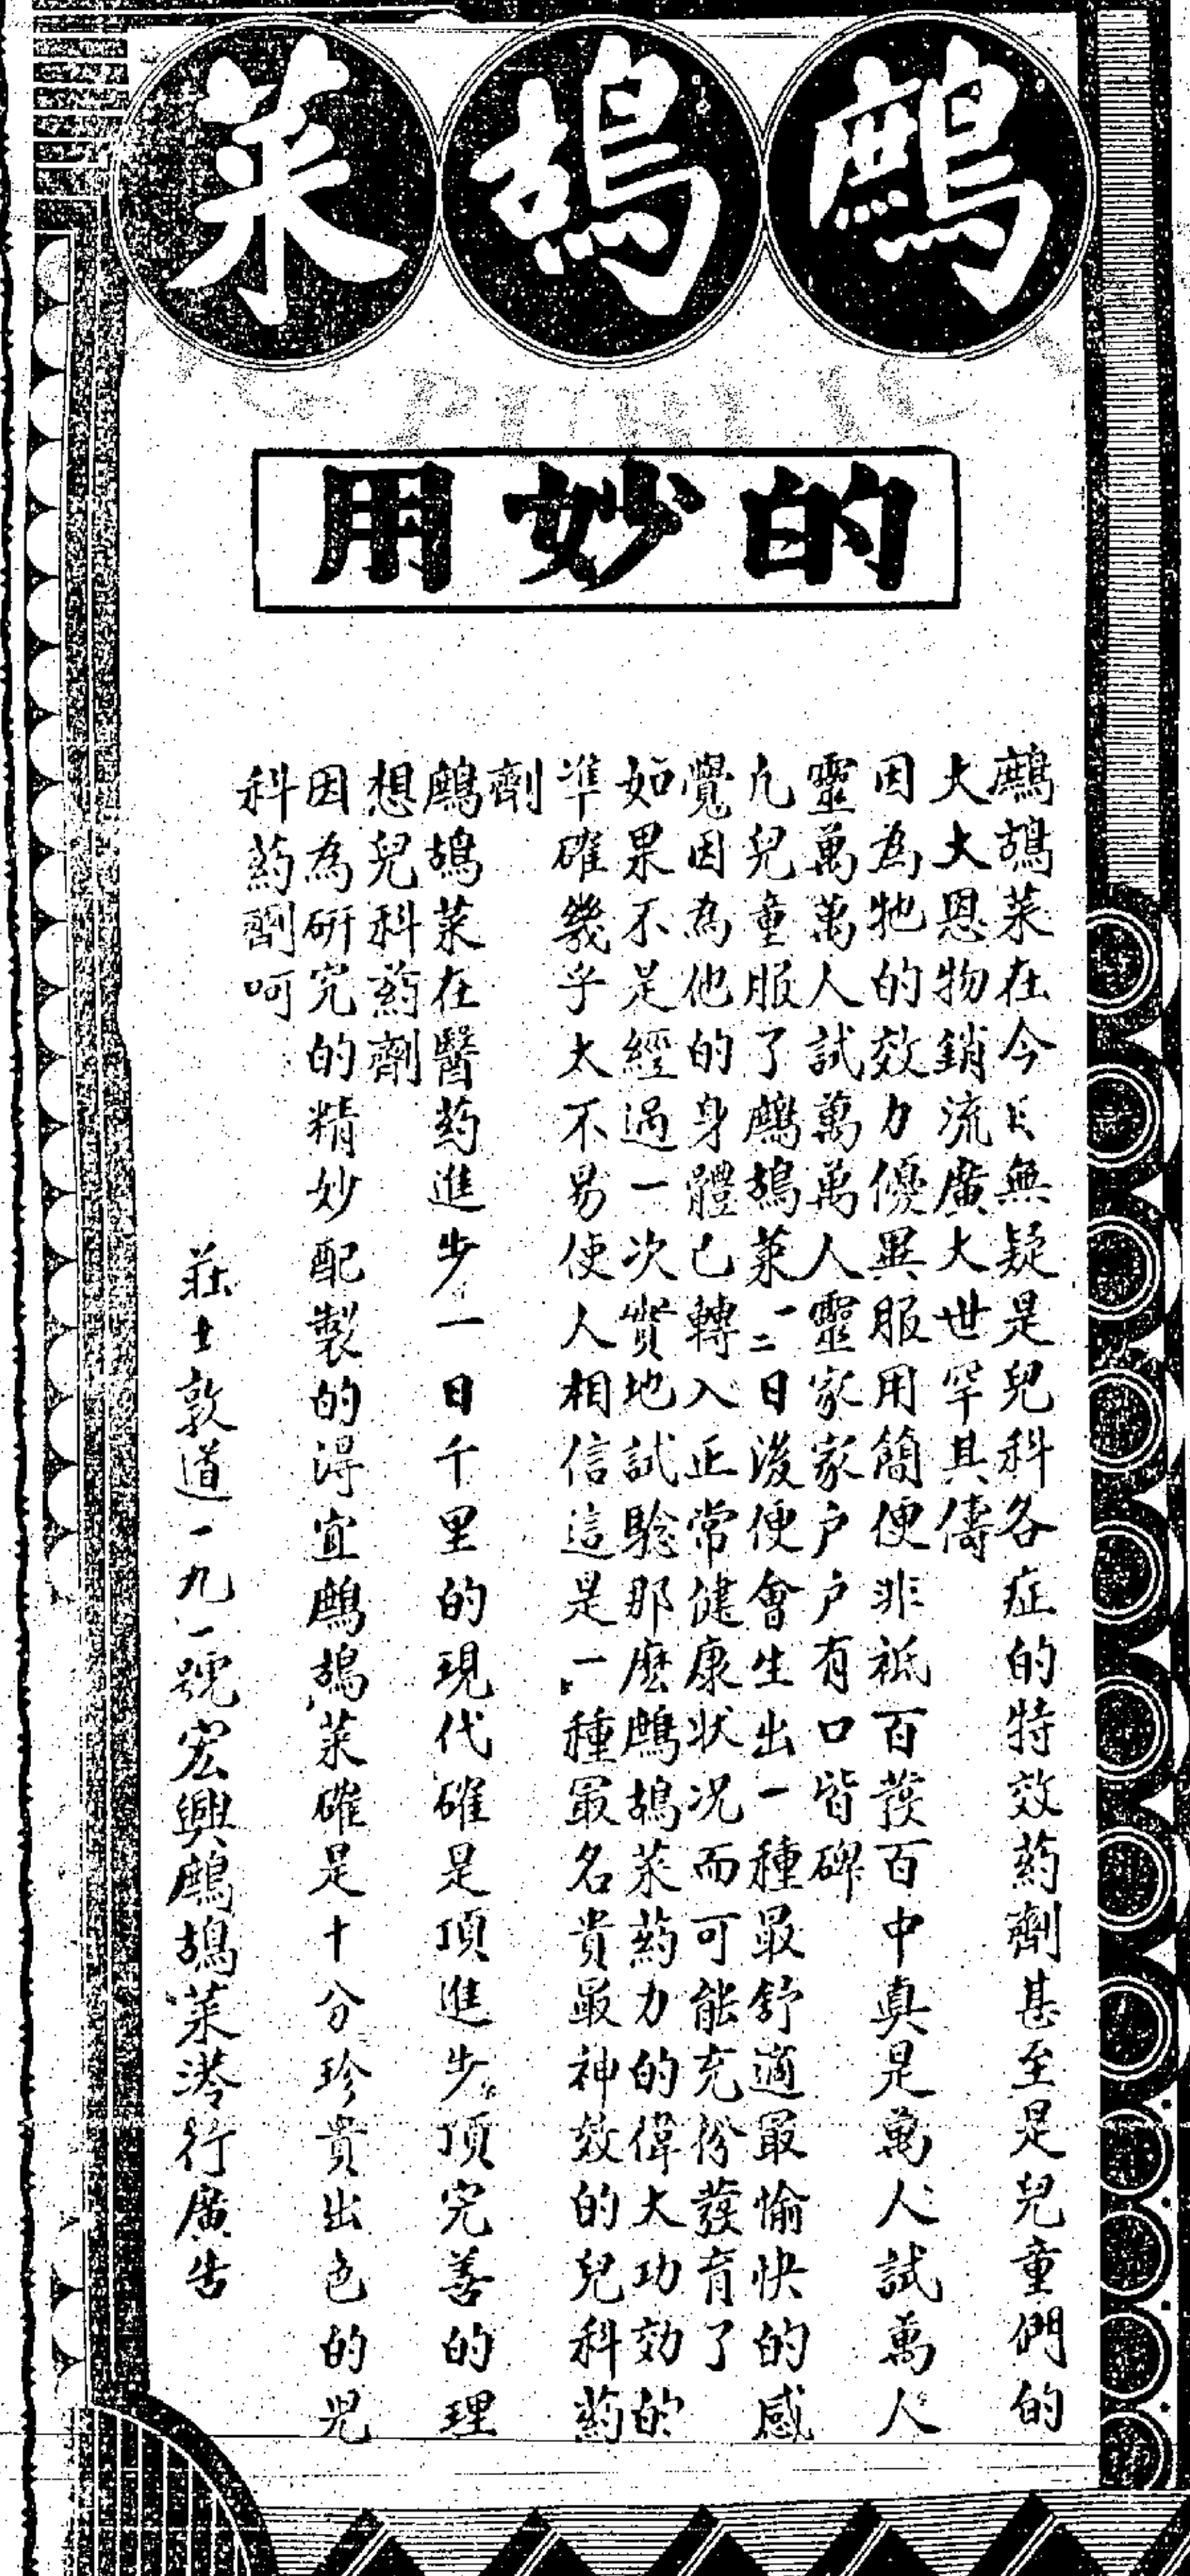 鷓鴣菜
的妙用
鷓鴣菜在今日無疑是兒科各症的特效葯劑甚至是兒童們的
大大恩物銷流廣大世罕其儔
因為牠的效力優異服用簡便非祗百發百中真是萬人試萬人
靈萬萬人試萬萬人靈家家户户有口皆碑
凡兒童服了鷓鴣菜一二日後便會生出一種最舒適最愉快的感
覺因為他的身體已轉入正常健康状况而可能充份發育了
如果不是經過一次實地試驗那麽鷓鴣菜葯力的偉大功効的
準確幾乎太不易使人相信這是一種最名貴最神效的兒科葯
劑
鷓鴣菜在醫葯進步一日千里的現代確是頂進步頂完善的理
想兒科葯劑
因為研究的精妙配製的得宜鷓鴣菜確是十分珍貴出色的兒
科葯劑呵
莊士敦道一九一號宏興鷓鴣菜港行廣告